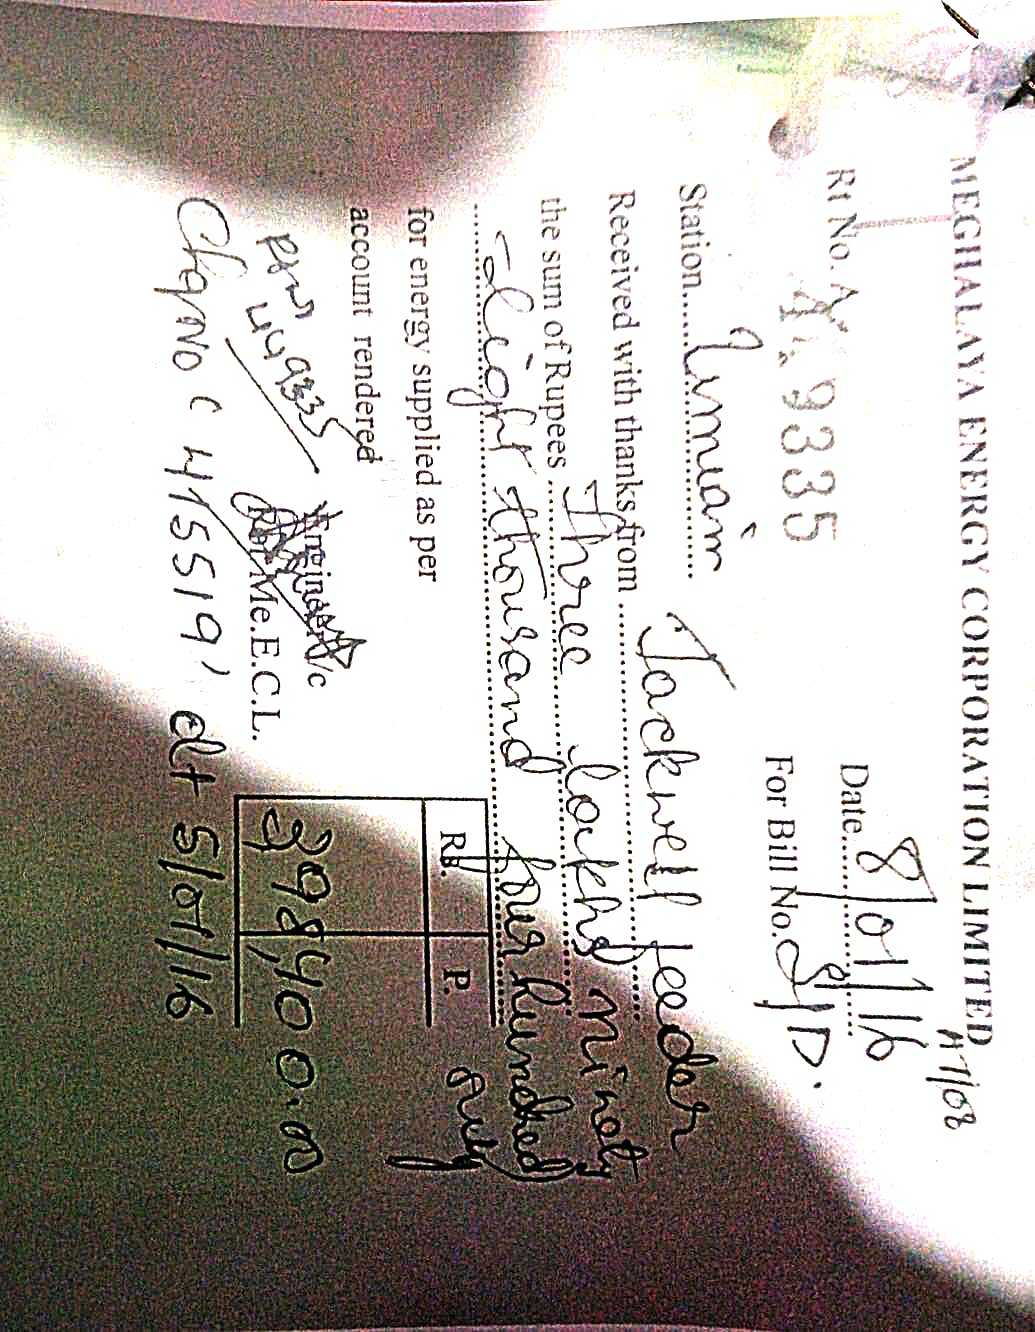 MEGHALAYA ENERGY CORPORATION LIMITED
HT/08
Rt No. A 9335
Date. 8/01/16
For Bill No. S/D.
Station Umiam
Received with thanks from Jackwell feeder
the sum of Rupees Three lakhs ninety
eight thousand four hundred
only
for energy supplied as per
account rendered
Rs. P.
398,400.00
Engineer I/c
Me.E.C.L.
Chq No ( 415519 ) dt 5/01/16